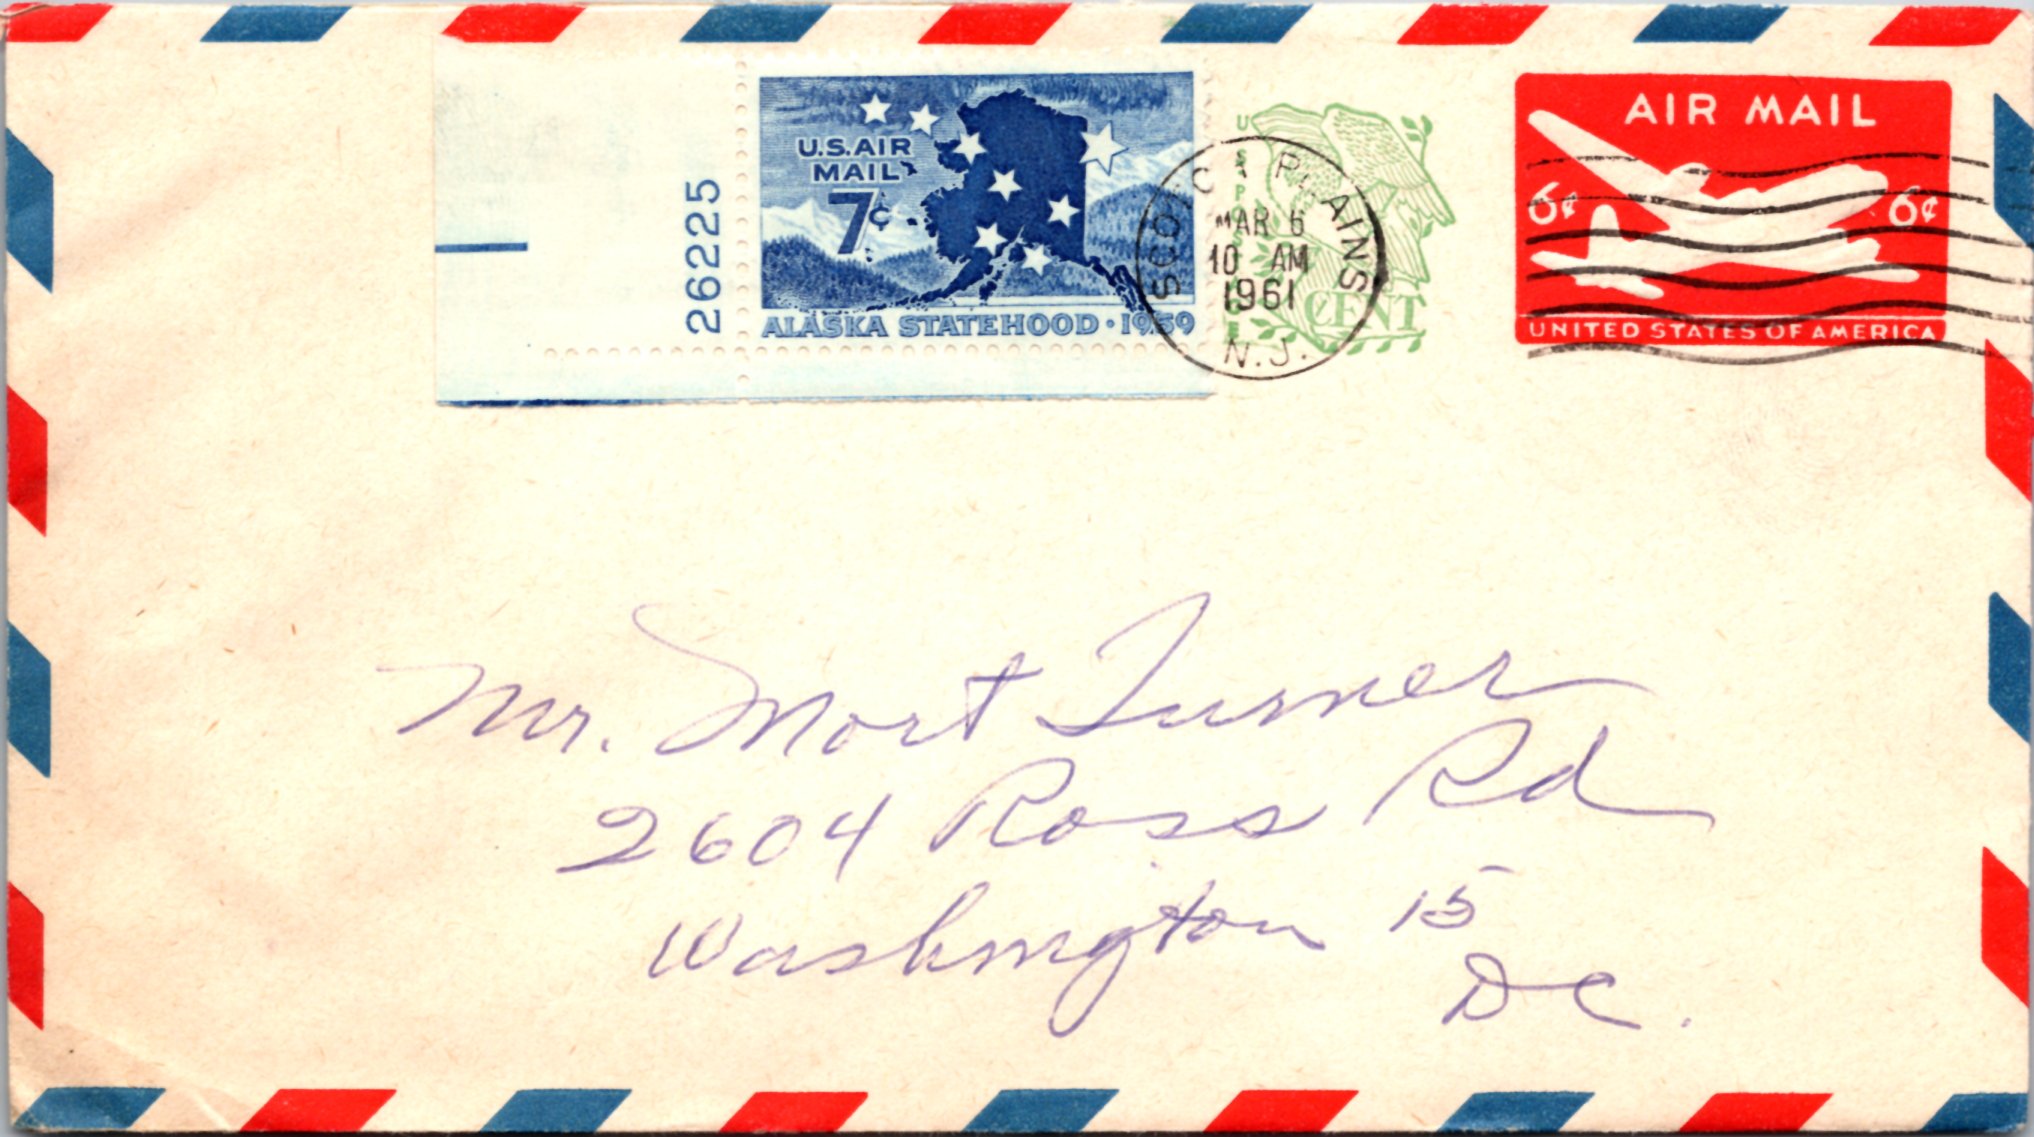 26225
U.S. AIR
MAIL
7¢
ALASKA STATEHOOD · 1959
U.S. POSTAGE
CENT
SCOTCH PLAINS
MAR 6
10 AM
1961
N.J.
AIR MAIL
6¢ 6¢
UNITED STATES OF AMERICA
Mr. Mort Turner
2604 Ross Rd
Washington 15
DC.